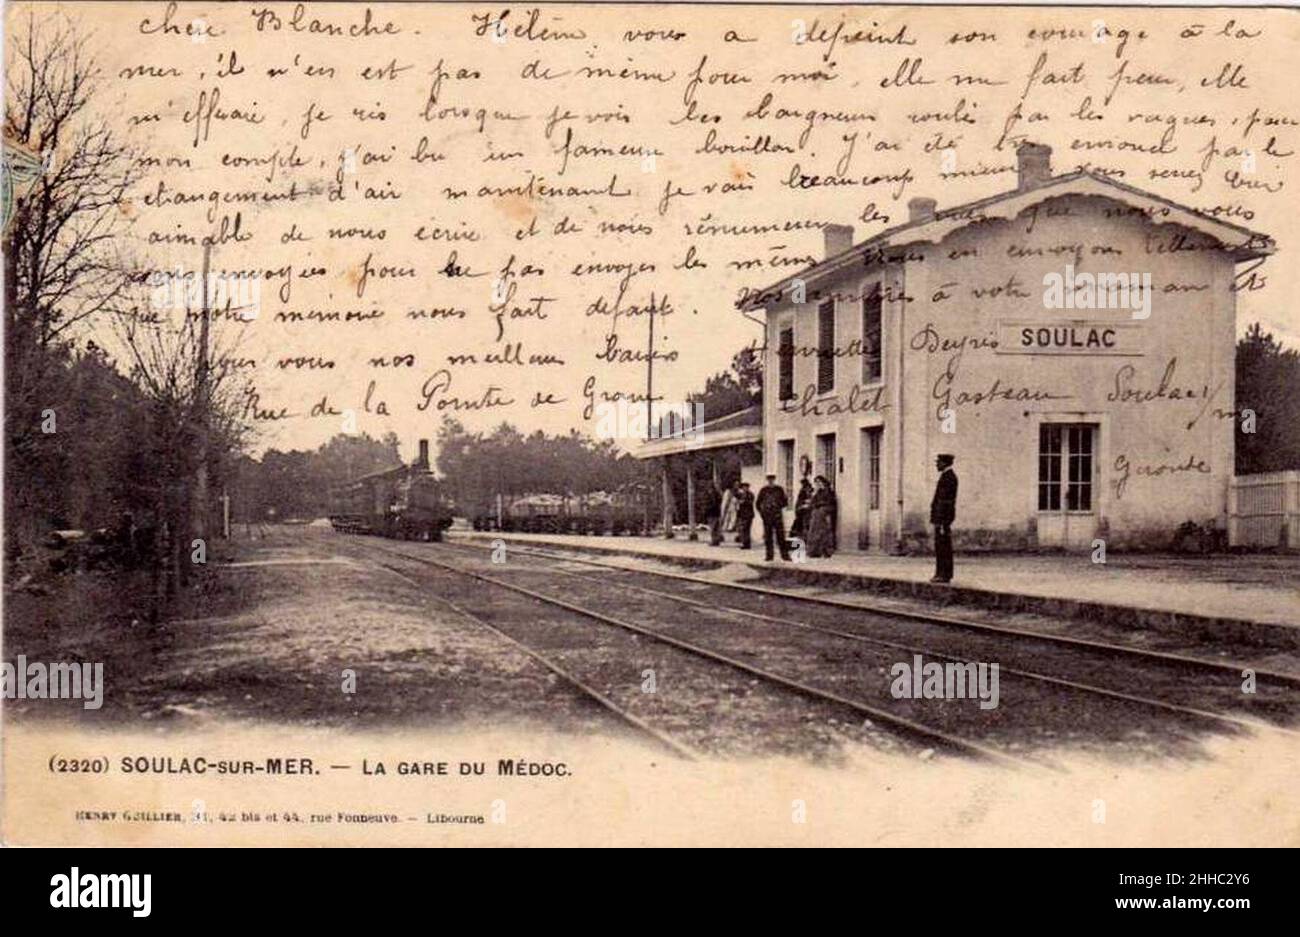 chère Blanche. Hélène vous a dépeint son courage à la
mer, il n'en est pas de même pour moi, elle me fait peur, elle
m'effraie, je ris lorsque je vois les baigneurs roulés par les vagues, pour
mon compte, j'ai bu un fameux bouillon. J'ai été par le
changement d'air maintenant je vais beaucoup mieux. Vous serez bien
aimable de nous écrire et de nous renumerer les vues que nous vous
avons envoyées pour ne pas envoyer les mêmes, nous en envoyons tellement
que notre mémoire nous fait défaut. Nos amitiés à votre maman et
pour vous nos meilleurs baisers Henriette
Rue de la Pointe de Grave Chalet Gasteau Soulac s/m
Gironde
SOULAC
(2320) SOULAC-SUR-MER. — LA GARE DU MÉDOC.
HENRY GUILLIER, 42 bis et 44, rue Fonneuve. — Libourne
alamy
Image ID: 2HHC2Y6
www.alamy.com